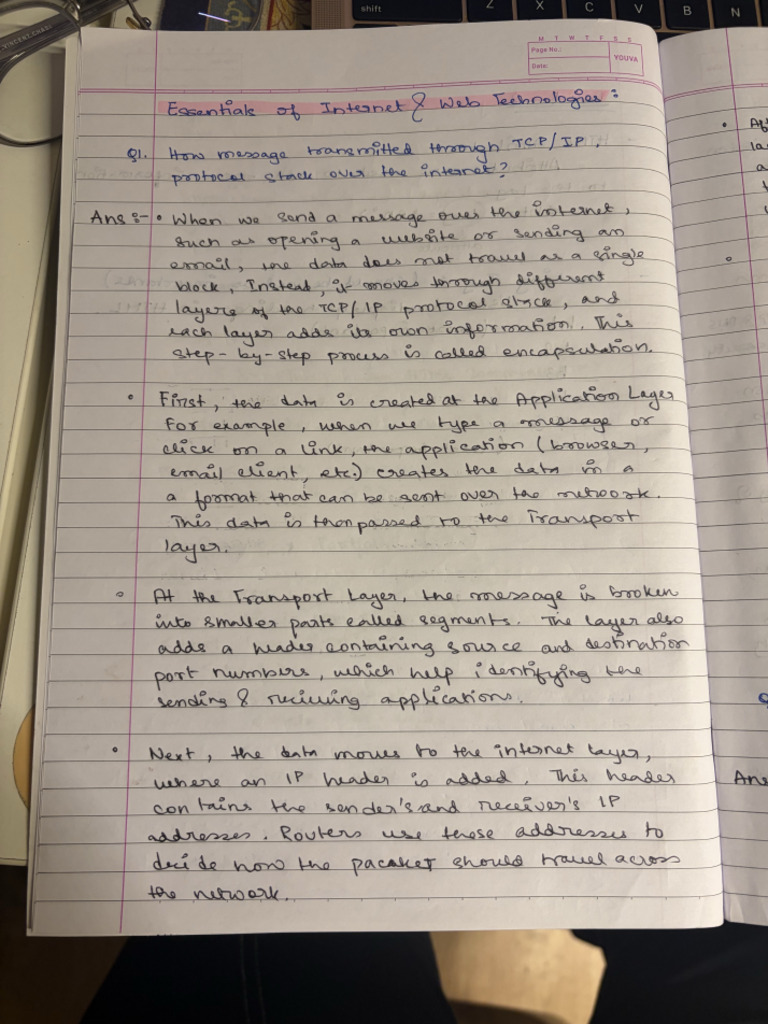 shift
Z
X
C
V
B
N
VINCENT CHASE
M T W T F S S
Page No.:
Date:
YOUVA
Essentials of Internet & Web Technologies :
Q1. How message transmitted through TCP/IP,
protocol stack over the internet?
Ans :- • When we send a message over the internet,
such as opening a website or sending an
email, the data does not travel as a single
block, Instead, it moves through different
layers of the TCP/IP protocol stack, and
each layer adds its own information. This
step-by-step process is called encapsulation.
• First, the data is created at the Application Layer
For example, when we type a message or
click on a link, the application (browser,
email client, etc.) creates the data in a
a format that can be sent over the network.
This data is then passed to the Transport
layer.
• At the Transport Layer, the message is broken
into smaller parts called segments. The layer also
adds a header containing source and destination
port numbers, which help identifying the
sending & recieving applications.
• Next, the data moves to the internet layer,
where an IP header is added. This header
contains the sender's and receiver's IP
addresses. Routers use these addresses to
decide how the pacaket should travel across
the network.
• Af
la
a
Ans